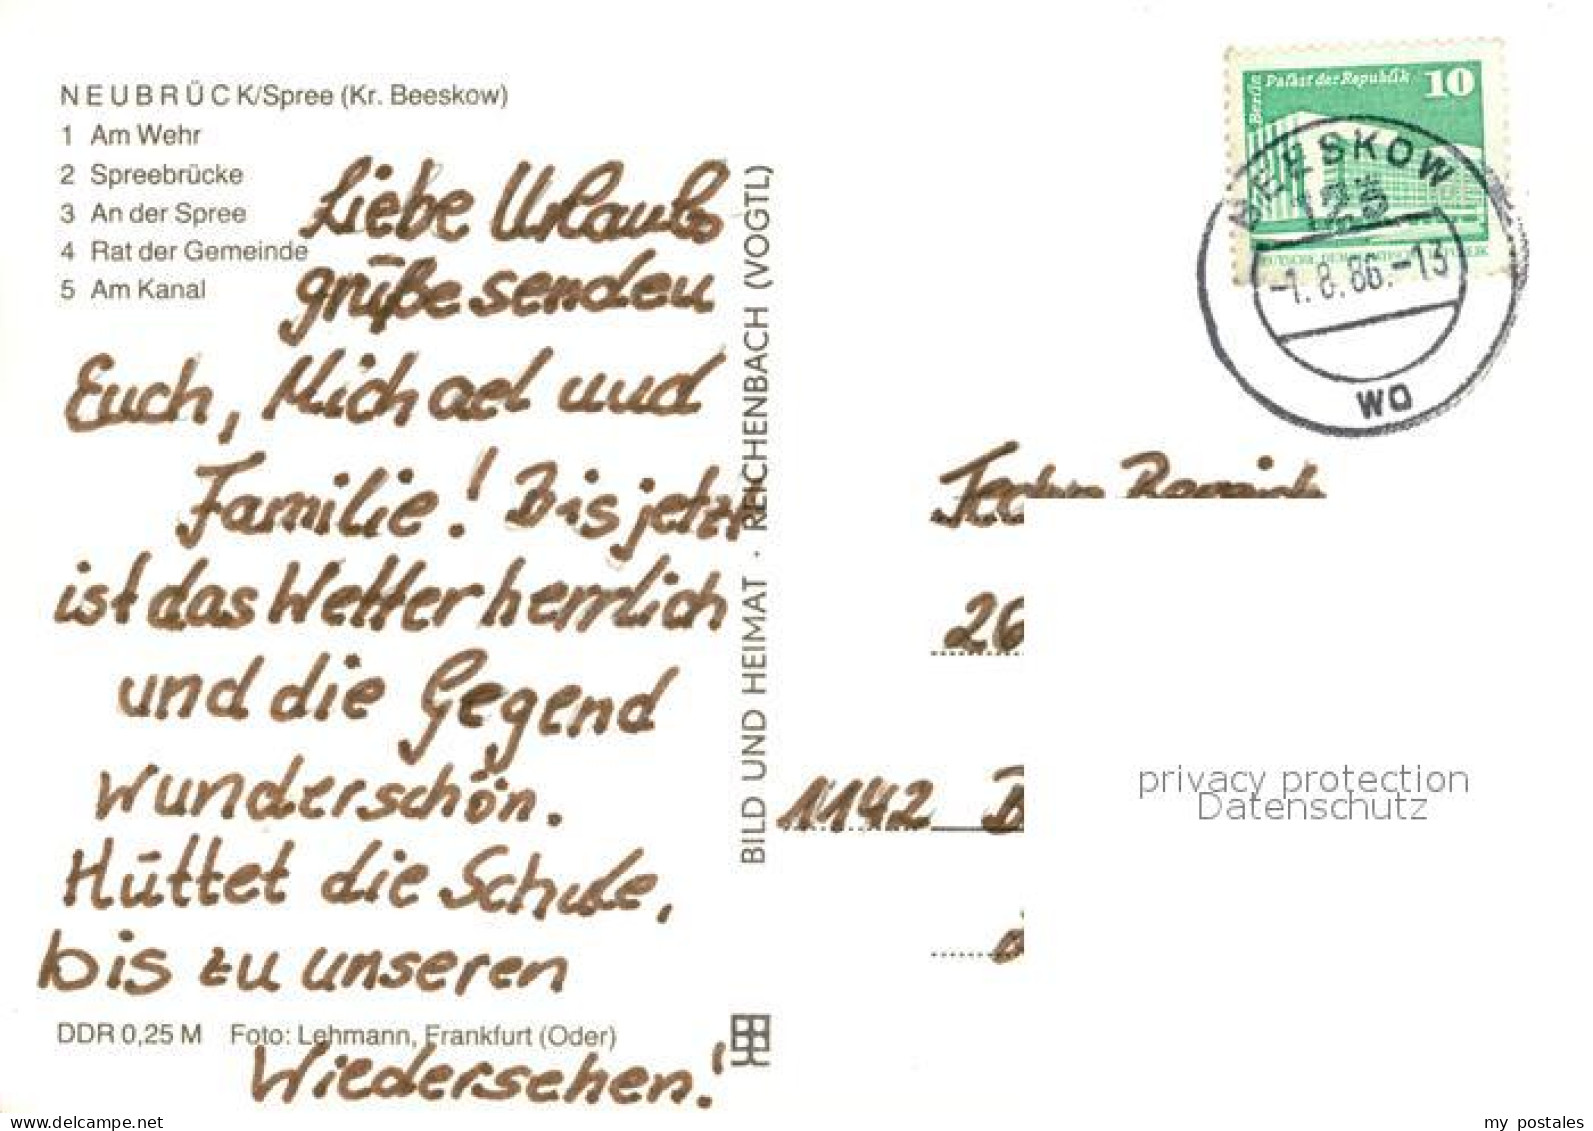 NEUBRÜCK/Spree (Kr. Beeskow)
1 Am Wehr
2 Spreebrücke
3 An der Spree
4 Rat der Gemeinde
5 Am Kanal
Liebe Urlaubs
grüße senden
Euch, Michael und
Familie! Bis jetzt
ist das Wetter herrlich
und die Gegend
wunderschön.
Hüttet die Schule,
bis zu unseren
Wiedersehen!
DDR 0,25 M Foto: Lehmann, Frankfurt (Oder)
BILD UND HEIMAT · REICHENBACH (VOGTL)
Berlin Palast der Republik 10
BEESKOW
125
-1.8.86.-13
wo
26
1142 B
privacy protection
Datenschutz
delcampe.net
my_postales